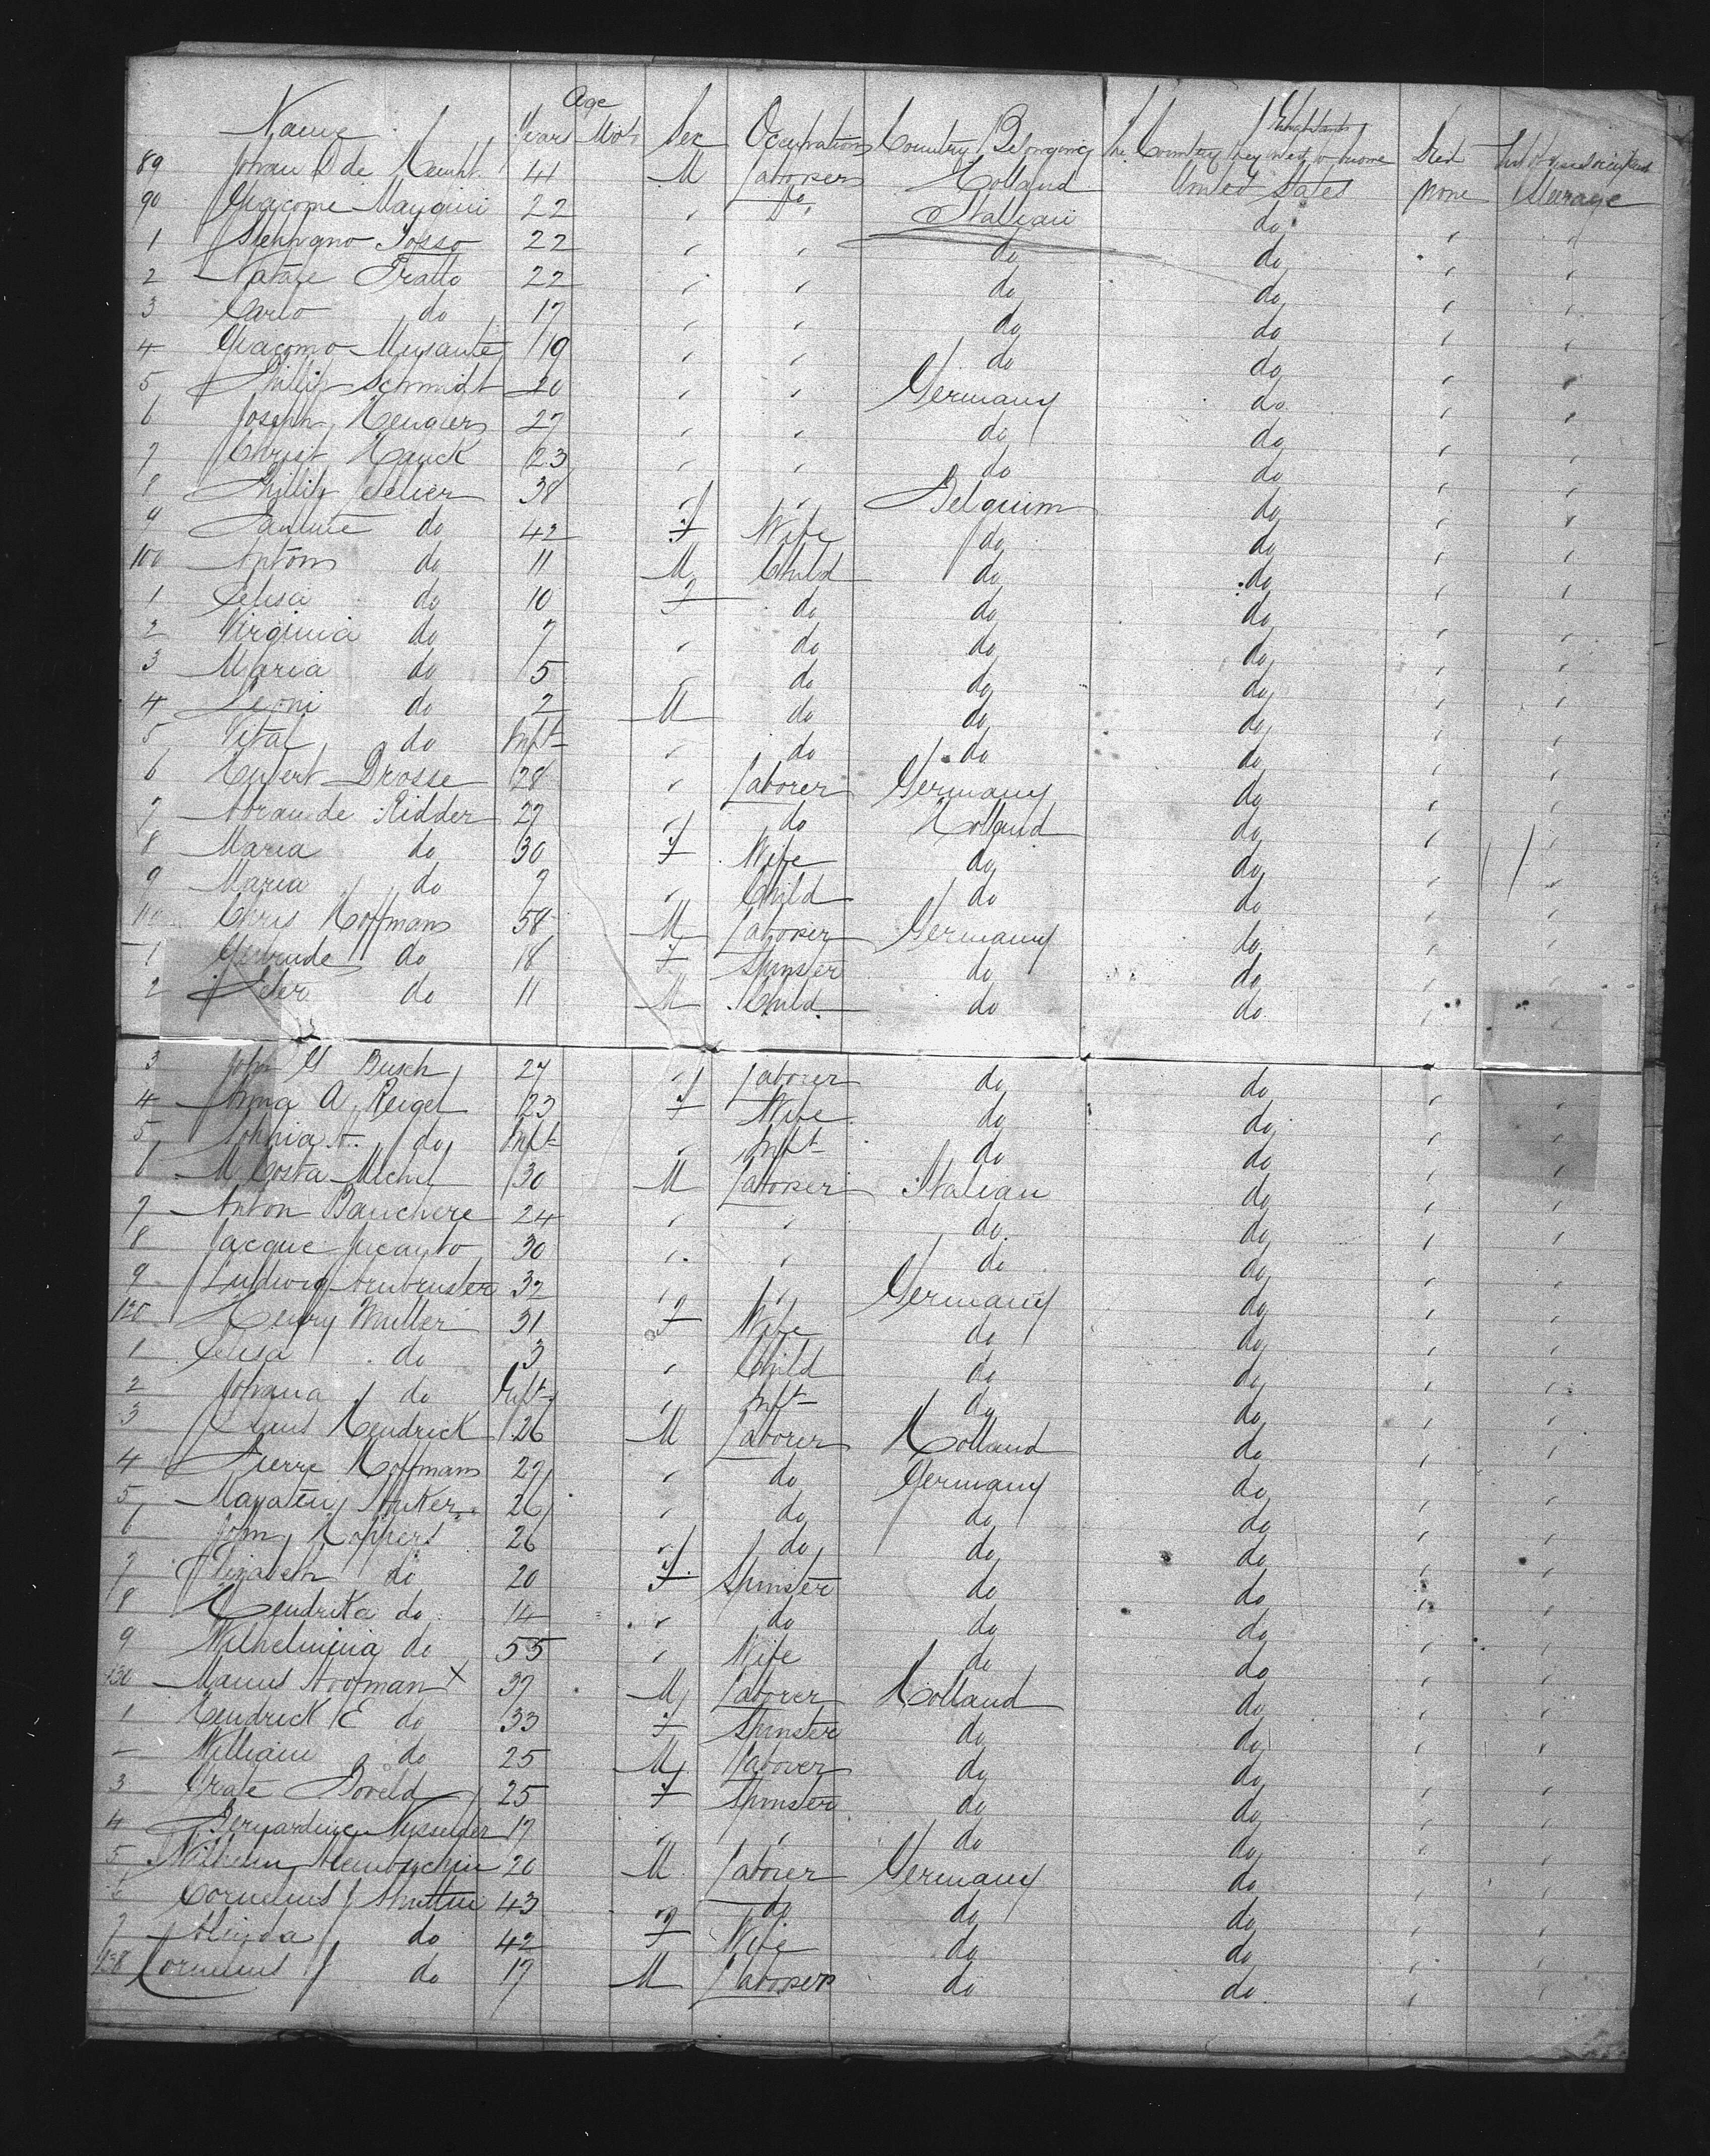 Name Age Years Mots Sex Occupation Country Belonging The Country they intend to become Inhabitants Died Part of vessel occupied
89 Johan de 41 M Laborer Holland United States none Steerage
90 Giacome 22 " Do Italian do " "
1 Tosso 22 " " do do " "
2 Natale Tratto 22 " " do do " "
3 Carlo do 17 " " do do " "
4 Giacomo Musante 19 " " do do " "
5 Philip Schmidt 20 " " Germany do " "
6 Joseph Hengers 27 " " do do " "
7 Christ Hauck 23 " " do do " "
8 Phillip 38 " " Belguim do " "
9 do 42 F Wife do do " "
100 Antom do 11 M Child do do " "
1 Elisa do 10 F do do do " "
2 Virginia do 7 " do do do " "
3 Maria do 5 " do do do " "
4 Leoni do 2 M do do do " "
5 Vital do Inft " do do do " "
6 Hubert Drosse 28 " Laborer Germany do " "
7 Abram de Ridder 27 " do Holland do " "
8 Maria do 30 F Wife do do " "
9 Maria do 7 " Child do do " "
110 Chris Hoffmans 58 M Laborer Germany do " "
1 Gertrude do 18 F Spinster do do " "
2 Peter do 11 M Child do do " "
3 John G Busch 27 " Laborer do do " "
4 Anna A Reigel 23 F Wife do do " "
5 Sophia A. do Inft " Inft do do " "
6 M Costa Michel 30 M Laborer Italian do " "
7 Anton Bauchere 24 " " do do " "
8 Jacque 30 " " do do " "
9 Ludwig Armbruster 32 " " Germany do " "
120 Henry Muller 31 F Wife do do " "
1 Elisa do 3 " Child do do " "
2 Johana do Inft " Inft do do " "
3 Hendrick 26 M Laborer Holland do " "
4 Pierre Hoffmans 27 " do Germany do " "
5 26 " do do do " "
6 John Koppers 26 " do do do " "
7 Elizabeth do 20 F Spinster do do " "
8 Hendrika do 14 " do do do " "
9 Wilhelmina do 55 " Wife do do " "
130 Marius Noorman X 37 M Laborer Holland do " "
1 Hendrick E do 33 F Spinster do do " "
– William do 25 M Laborer do do " "
3 Grate 25 F Spinster do do " "
4 Bernardine 17 " " do do " "
5 Wilhelm 20 M Laborer Germany do " "
6 Cornelius J 43 do do do " "
7 do 42 F Wife do do " "
138 Cornelius J do 17 M Laborer do do " "